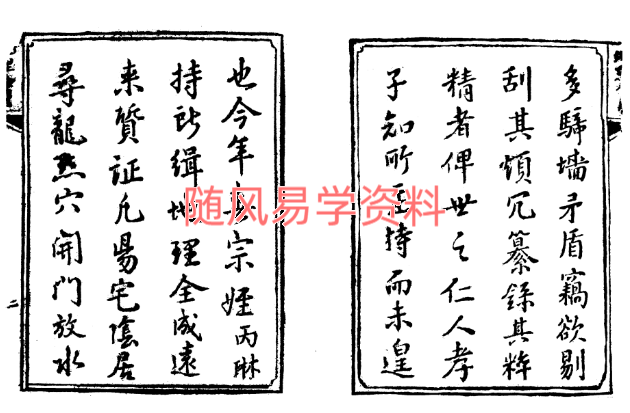 多騎墻矛盾竊欲剔
刮其煩冗纂錄其粹
精者俾世之仁人孝
子知所持而未遑
也今年宗姪丙琳
持所緝地理全成遠
来質証凡昜宅隂居
尋龍㸃穴開門放水
二
随风易学资料